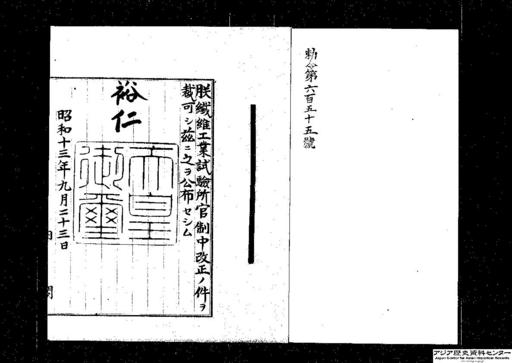 勅令第六百五十五號
朕繊維工業試驗所官制中改正ノ件ヲ
裁可シ茲ニ之ヲ公布セシム
裕仁
天皇御璽
昭和十三年九月二十三日
内閣
アジア歴史資料センター
Japan Center for Asian Historical Records